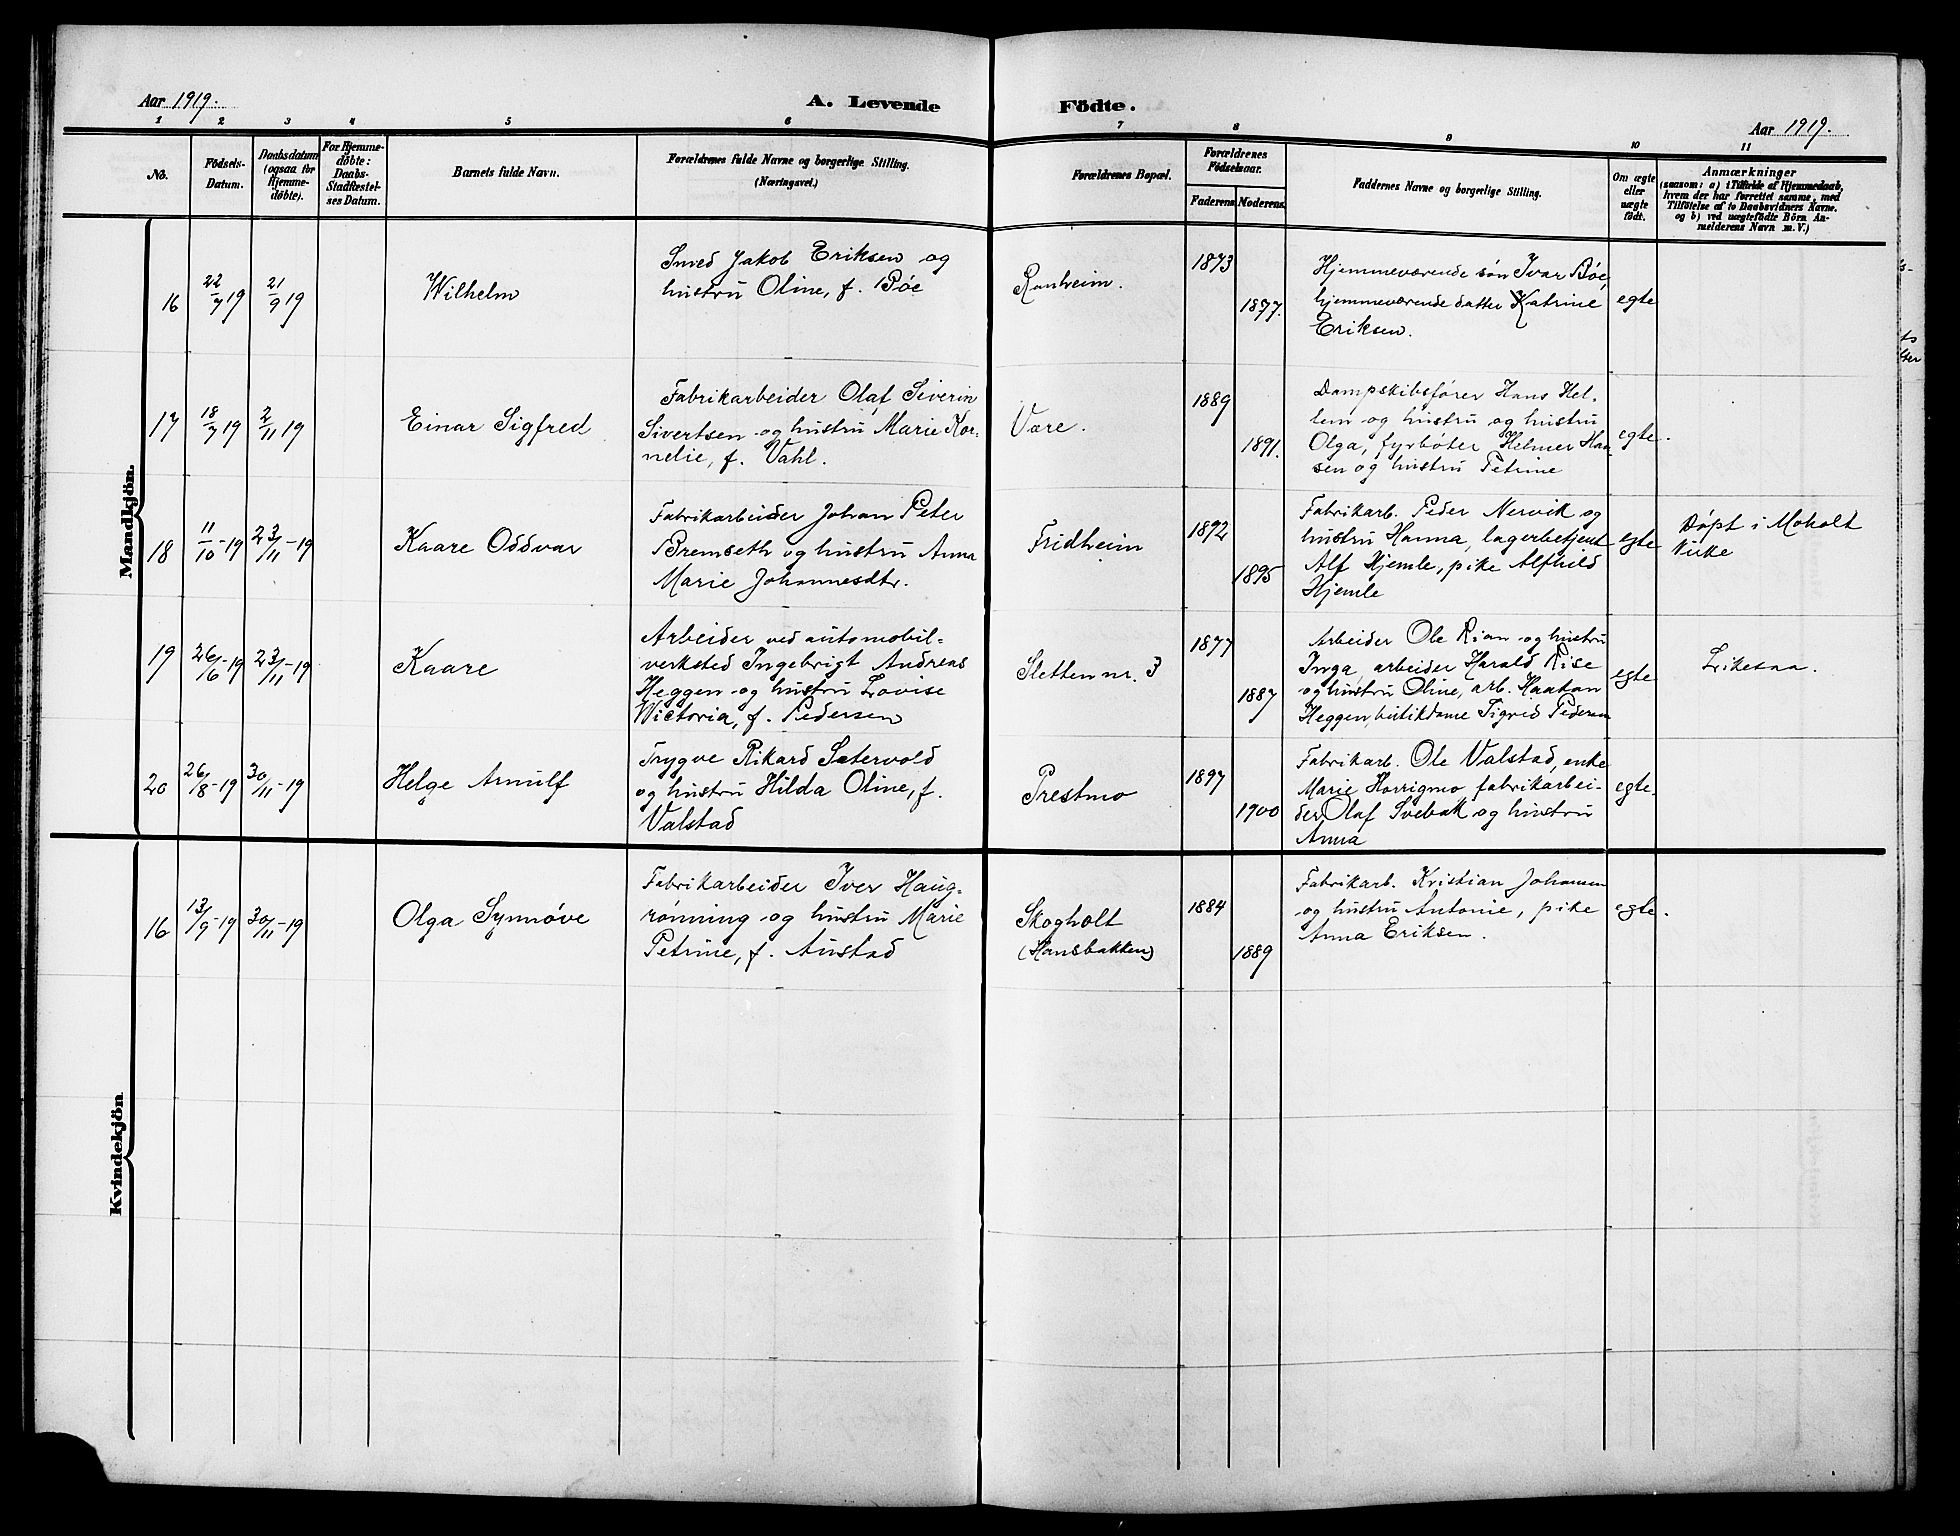 Aar 1919. A. Levende Födte. Aar 1919.
1 2 3 4 5 6 7 8 9 10 11
No.
Födsels-
Datum.
Daabsdatum
(ogsaa for
Hjemme-
döbte).
For Hjemme-
döbte:
Daabs-
Stadfæstel-
ses Datum.
Barnets fulde Navn.
Forældrenes fulde Navne og borgerlige Stilling.
(Næringsvei.)
Forældrenes Bopæl.
Forældrenes
Födselsaar.
Faderens Moderens.
Faddernes Navne og borgerlige Stilling.
Om ægte
eller
uægte
födt.
Anmærkninger
(saasom: a) i Tilfælde af Hjemmedaab,
hvem der har forrettet samme, med
Tilföielse af to Daabsvidners Navne.
og b) ved uægtefödte Börn An-
melderens Navn m. V.)
Mandkjön.
16
22/7 19
21/9 19
Wilhelm
Smed Jakob Eriksen og
hustru Oline, f. Bóe
Ranheim.
1873
1877.
Hjemmeværende sön Ivar Bóe,
hjemmeværende datter Katrine
Eriksen.
egte
17
18/7 19
2/11 19
Einar Sigfred
Fabrikarbeider Olaf Siverin
Sivertsen og hustru Marie Kor-
nelie, f. Vahl.
Være.
1889
1891.
Dampskibsfører Hans Hel-
lem og hustru og hustru
Olga, fyrbóter Helmer Han-
sen og hustru Petrine
egte.
18
11/10-19
23/11-19
Kaare Oddvar
Fabrikarbeider Johan Peter
Bremseth og hustru Anna
Marie Johannesdtr.
Fridheim
1892
1895
Fabrikarb. Peder Nervik og
hustru Hanna, lagerbetjent
Alf Hjemle, pike Alfhild
Hjemle
egte
Døpt i Moholt
Kirke
19
26/6-19
23/11-19
Kaare
Arbeider ved automobil-
verksted Ingebrigt Andreas
Heggen og hustru Lovise
Victoria, f. Pedersen
Sletten nr. 3
1877
1887
Arbeider Ole Rian og hustru
Inga, arbeider Harald Rise
og hustru Oline, arb. Haakon
Heggen, butikdame Sigrid Pedersen
egte
Likesaa.
20
26/8-19
30/11-19
Helge Arnulf
Trygve Rikard Sætervold
og hustru Hilda Oline, f.
Valstad
Prestmo
1897
1900
Fabrikarb. Ole Valstad, enke
Marie Horrigmo fabrikarbei-
der Olaf Svebak og hustru
Anna
egte.
Kvindekjön.
16
13/9-19
30/11-19
Olga Synnóve
Fabrikarbeider Iver Haug-
rónning og hustru Marie
Petrine, f. Austad
Skogholt
(Hansbakken)
1884
1889
Fabrikarb. Kristian Johansen
og hustru Antonie, pike
Anna Eriksen.
egte.